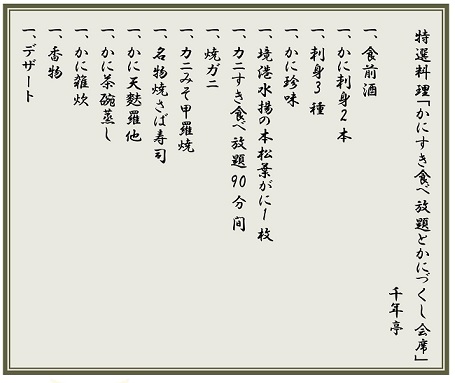 特選料理「かにすき食べ放題とかにづくし会席」
千年亭
一、食前酒
一、かに刺身2本
一、刺身3種
一、かに珍味
一、境港水揚の本松葉がに1枚
一、カニすき食べ放題90分間
一、焼ガニ
一、カニみそ甲羅焼
一、名物焼さば寿司
一、かに天麩羅他
一、かに茶碗蒸し
一、かに雑炊
一、香物
一、デザート